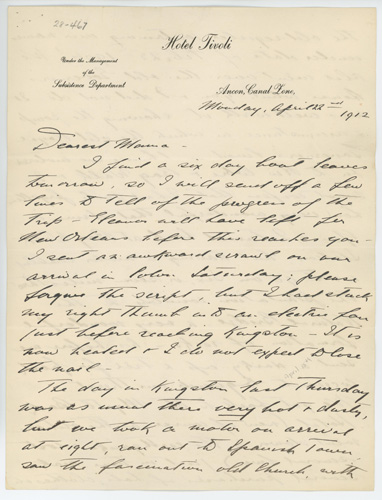 28-467
Hotel Tivoli
Under the Management
of the
Subsistence Department
Ancon, Canal Zone,
Monday, April 22nd 1912
Dearest Mama -
I find a six day boat leaves
tomorrow, so I will send off a few
lines to tell of the progress of the
trip - Eleanor will have left for
New Orleans before this reaches you -
I sent an awkward scrawl on our
arrival in Colon Saturday; please
forgive the script, but I had stuck
my right thumb into an electric fan
just before reaching Kingston - It is
now healed & I do not expect to lose
the nail -
The day in Kingston last Thursday
was as usual there very hot & dusty,
but we took a motor on arrival
at eight, ran out to Spanish Town,
saw the fascinating old Church, with